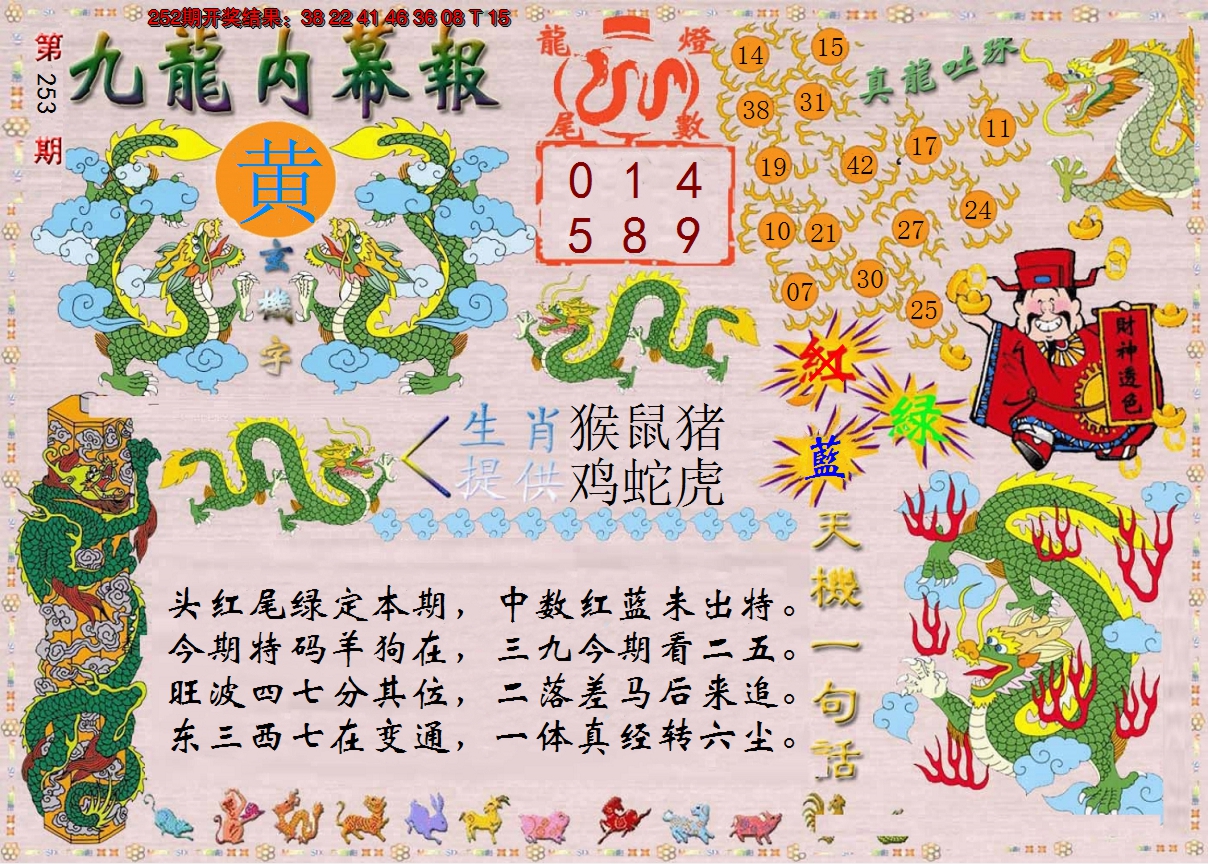 252期开奖结果：38 22 41 46 36 08 T 15
第253期
九龍内幕報
黄
玄機字
龍燈
尾數
0 1 4
5 8 9
真龍吐珠
14 15
38 31
19 42 17 11
10 21 27 24
07 30 25
財神透色
紅
綠
藍
生肖 猴鼠猪
提供 鸡蛇虎
头红尾绿定本期，中数红蓝未出特。
今期特码羊狗在，三九今期看二五。
旺波四七分其位，二落差马后来追。
东三西七在变通，一体真经转六尘。
天機一句話